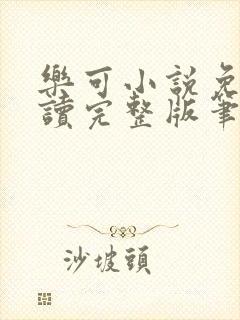 樂可小說免
讀完整版筆
沙坡頭